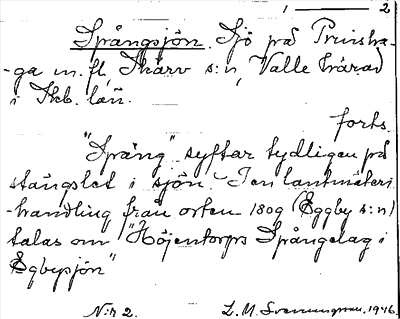 1 ——— 2
Spångsjön. Sjö på Prinsha-
-ga m. fl, Skärv s:n, Valle härad
i Skb. län.
forts.
"Spång" syftar tydligen på
stängslet i sjön. I en lantmäteri
-handling från orten 1809 (Eggby s:n)
talas om "Höjentorps Spångelag i
Egbysjön"
N:r 2. L. M. Svanungsson. 1946.